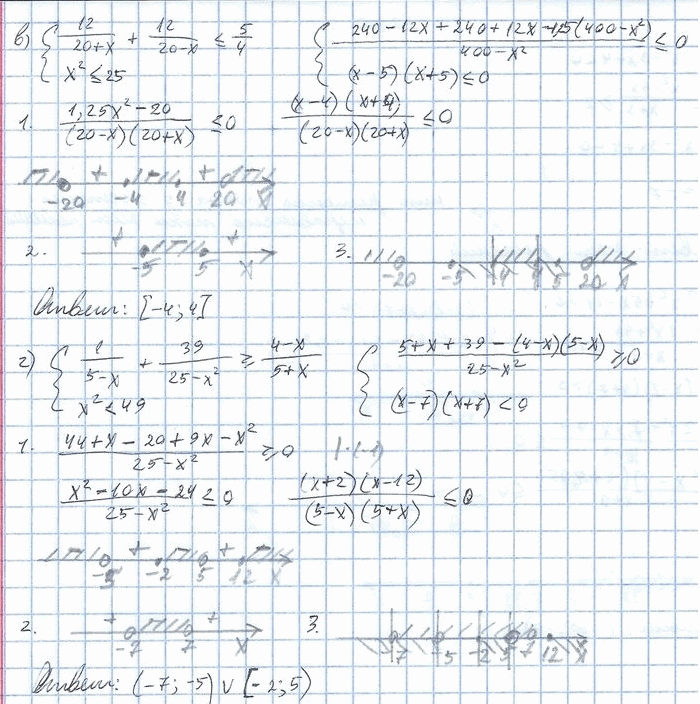 в) { 12/(20+x) + 12/(20-x) ≤ 5/4
x² ≤ 25
{ (240 - 12x + 240 + 12x - 1,25(400 - x²))/(400 - x²) ≤ 0
(x-5)(x+5) ≤ 0
1. (1,25x² - 20)/((20-x)(20+x)) ≤ 0 (x-4)(x+4)/((20-x)(20+x)) ≤ 0
+ + -20 -4 4 20 x
2. + + -5 5 x
3. -20 -5 -4 4 5 20 x
Ответ: [-4; 4]
г) { 1/(5-x) + 39/(25-x²) ≥ (4-x)/(5+x)
x² < 49
{ (5+x+39-(4-x)(5-x))/(25-x²) ≥ 0
(x-7)(x+7) < 0
1. (44+x-20+9x-x²)/(25-x²) ≥ 0 |·(-1)
(x²-10x-24)/(25-x²) ≤ 0 (x+2)(x-12)/((5-x)(5+x)) ≤ 0
+ + -5 -2 5 12 x
2. + + -7 7 x
3. -7 -5 -2 5 7 12 x
Ответ: (-7; -5) ∪ [-2; 5)